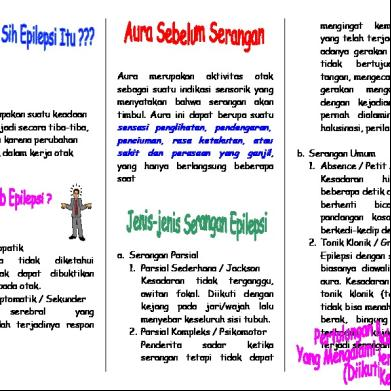 Sih Epilepsi Itu ???
pakan suatu keadaan
jadi secara tiba-tiba,
karena perubahan
dalam kerja otak
b Epilepsi ?
opatik
a tidak diketahui
ak dapat dibuktikan
pada otak.
ptomatik / Sekunder
serebral yang
lah terjadinya respon
Aura Sebelum Serangan
Aura merupakan aktivitas otak
sebagai suatu indikasi sensorik yang
menyatakan bahwa serangan akan
timbul. Aura ini dapat berupa suatu
sensasi penglihatan, pendengaran,
penciuman, rasa ketakutan, atau
sakit dan perasaan yang ganjil,
yang hanya berlangsung beberapa
saat
Jenis-jenis Serangan Epilepsi
a. Serangan Parsial
1. Parsial Sederhana / Jackson
Kesadaran tidak terganggu,
awitan fokal. Diikuti dengan
kejang pada jari/wajah lalu
menyebar keseluruh sisi tubuh.
2. Parsial Kompleks / Psikomotor
Penderita sadar ketika
serangan tetapi tidak dapat
mengingat kem
yang telah terja
adanya gerakan
tidak bertuju
tangan, mengeca
gerakan meng
dengan kejadia
pernah dialami
halusinasi, perila
b. Serangan Umum
1. Absence / Petit
Kesadaran hi
beberapa detik
berhenti bic
pandangan kos
berkedi-kedip de
2. Tonik Klonik / Gr
Epilepsi dengan s
biasanya diawali
aura. Kesadaran
tonik klonik (t
tidak bisa menah
berak, bingung
Pertolongan
Yang Mengalami
(Diikuti